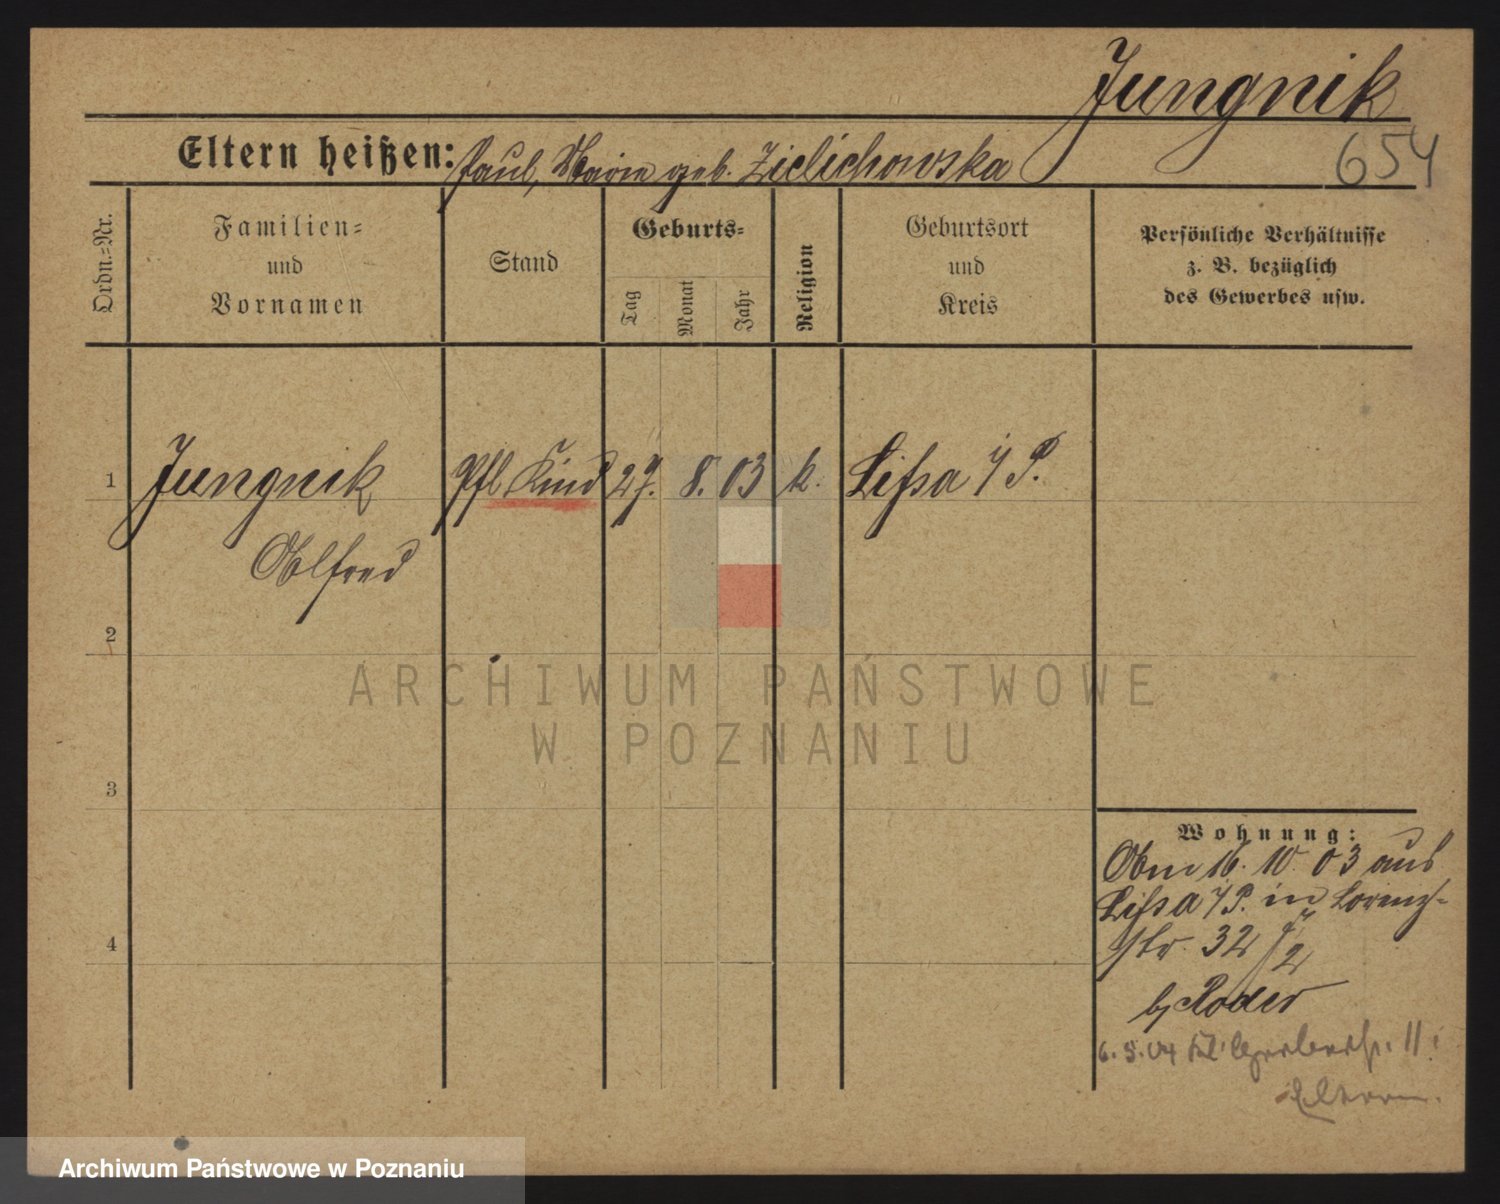 Jungnik
654
Eltern heißen: Paul, Marie geb. Zielichowska
Ordn.-Nr.
Familien- und Vornamen
Stand
Geburts-
Tag
Monat
Jahr
Religion
Geburtsort und Kreis
Persönliche Verhältnisse
z. B. bezüglich
des Gewerbes usw.
1 Jungnik Pfl Kind 27. 8. 03 k. Lissa i/P.
Alfred
2
ARCHIWUM PAŃSTWOWE
W POZNANIU
3
4
Wohnung:
Am 16. 10. 03 aus
Lissa i/P. in Lorenz-
str. 32
b/ Roder
6. 5. 04 Kl. Gerberstr. 11.
Eltern.
Archiwum Państwowe w Poznaniu